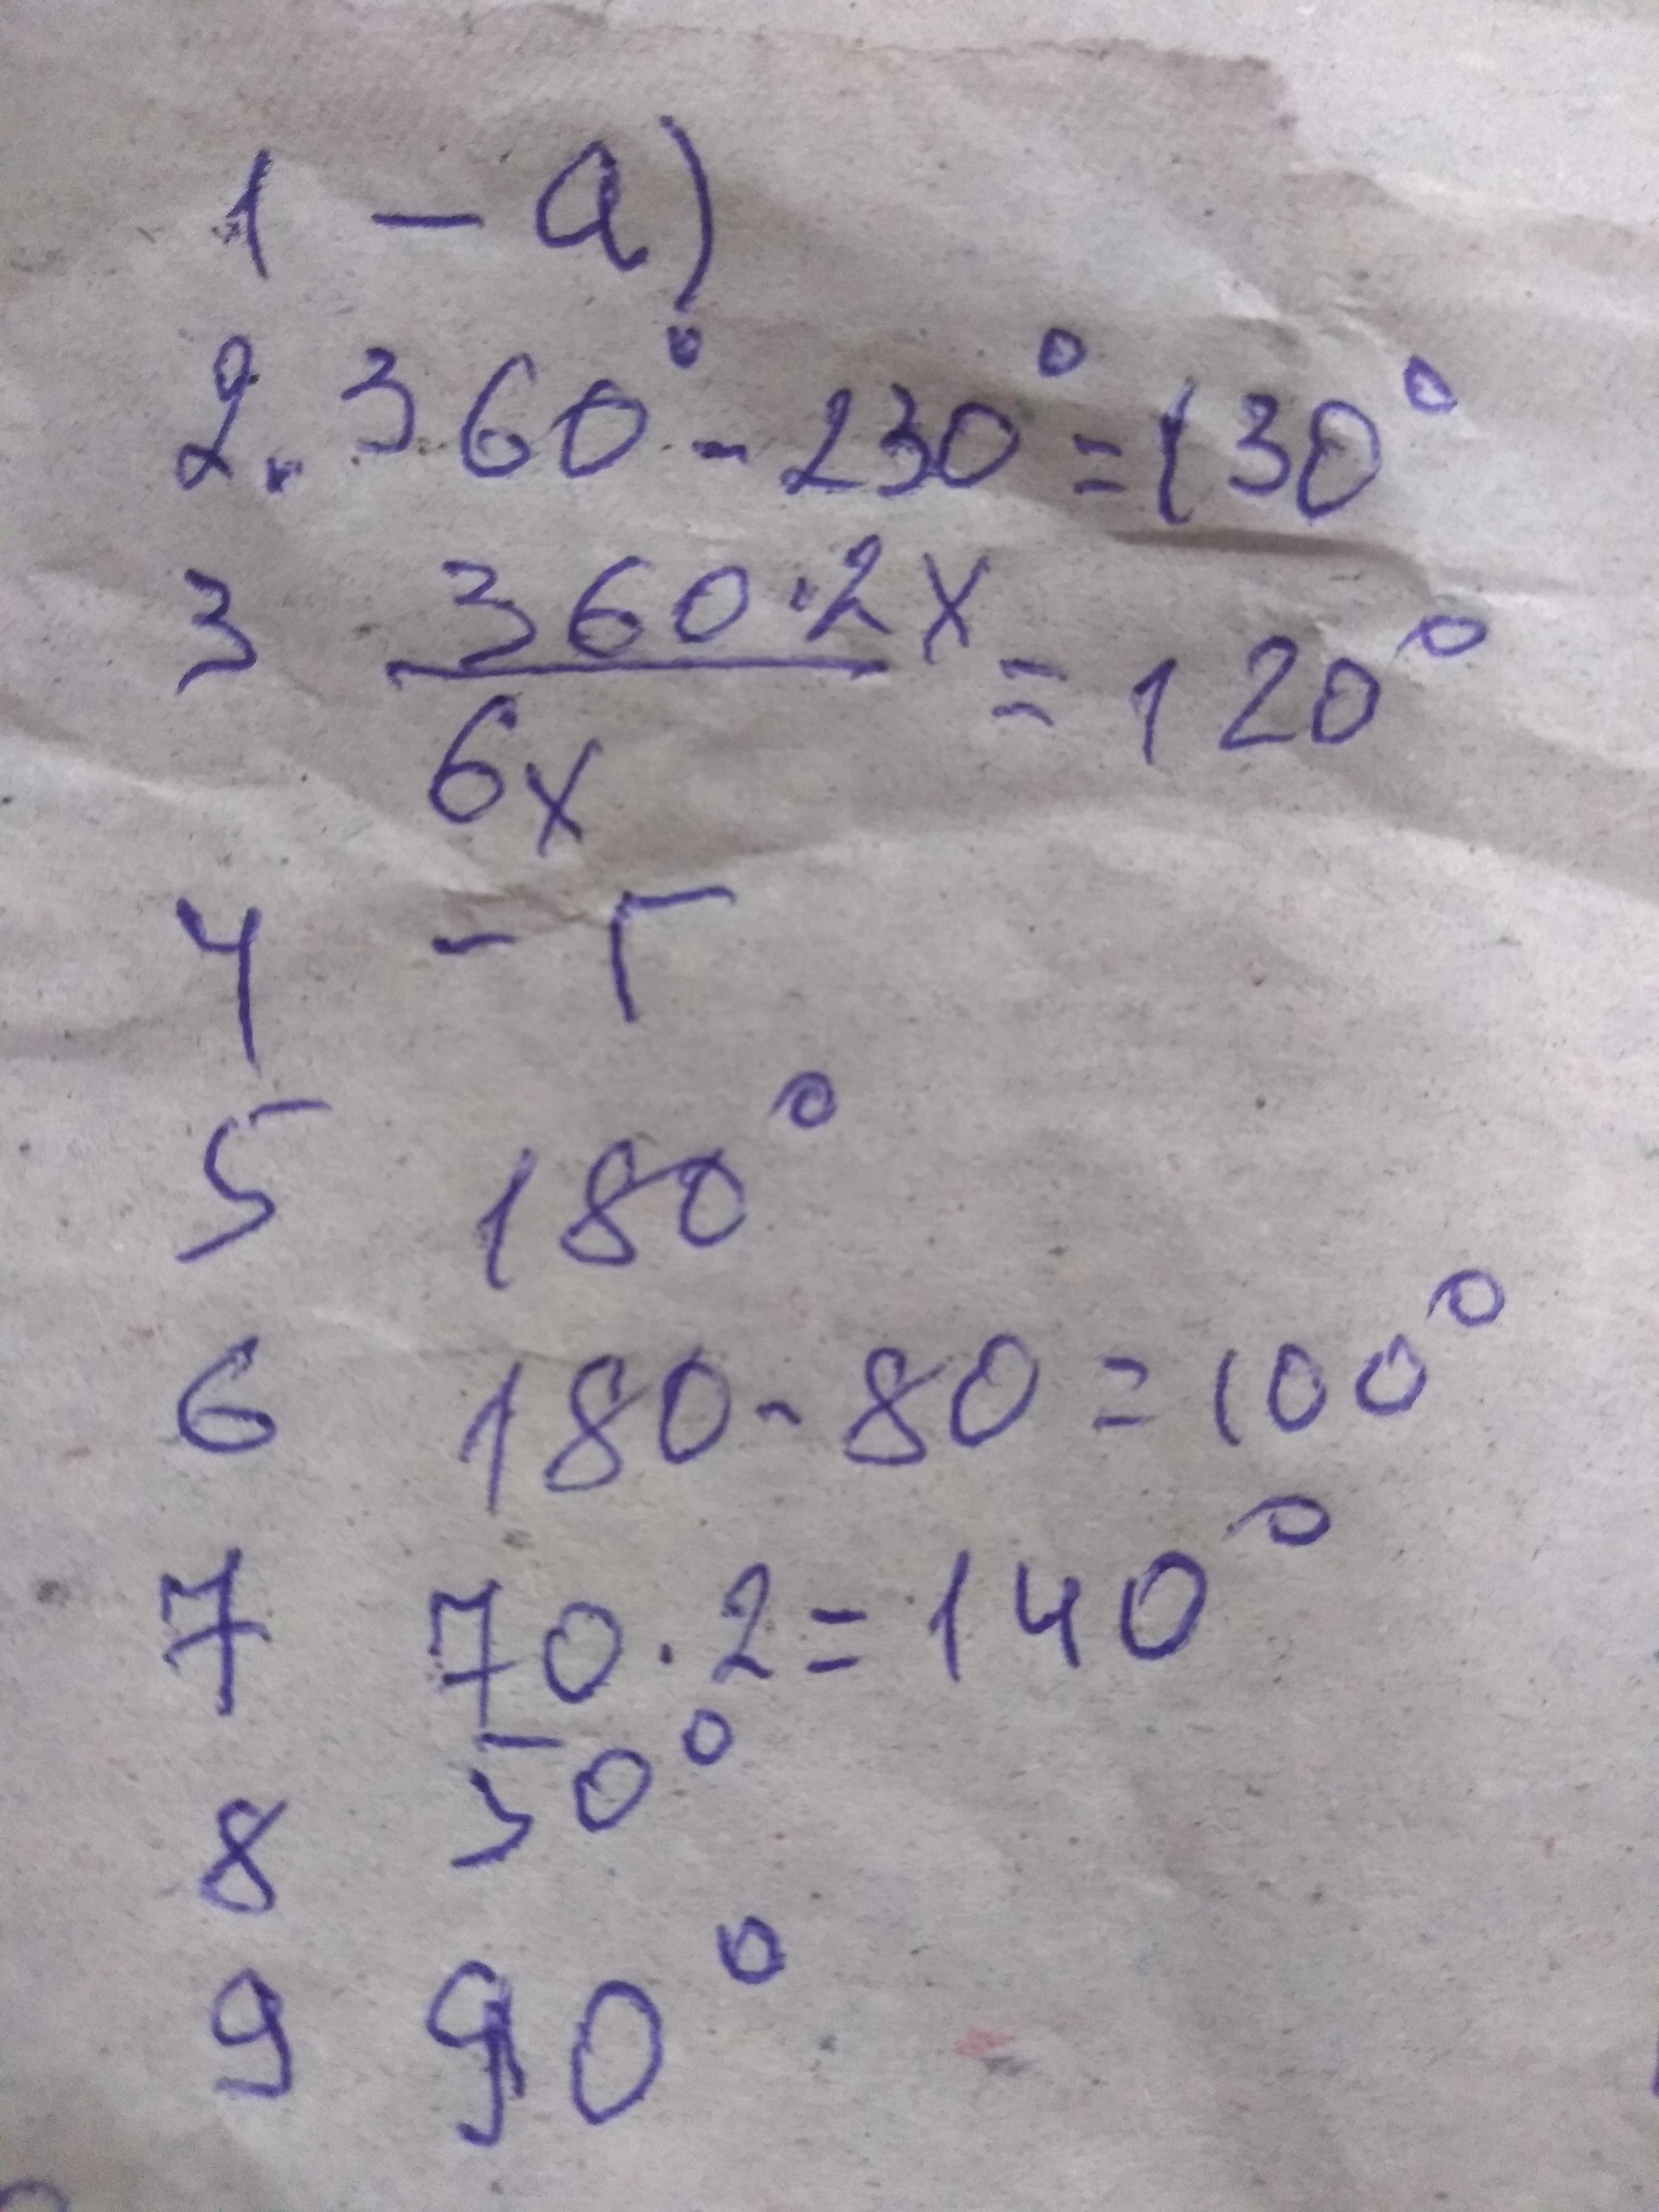 1 – a)
2. 360° - 230° = 130°
3 360·2x / 6x = 120°
4 - Г
5 180°
6 180 - 80 = 100°
7 70·2 = 140°
8 50°
9 90°